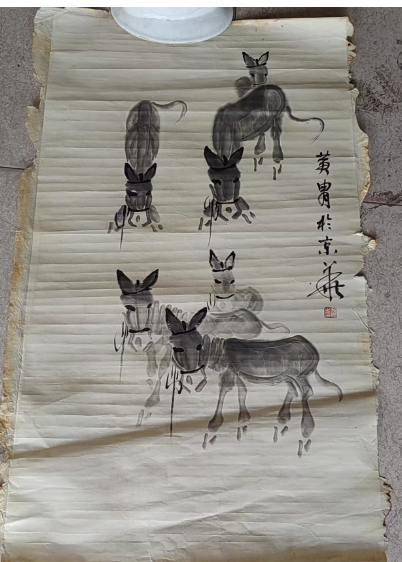 黄胄於京華